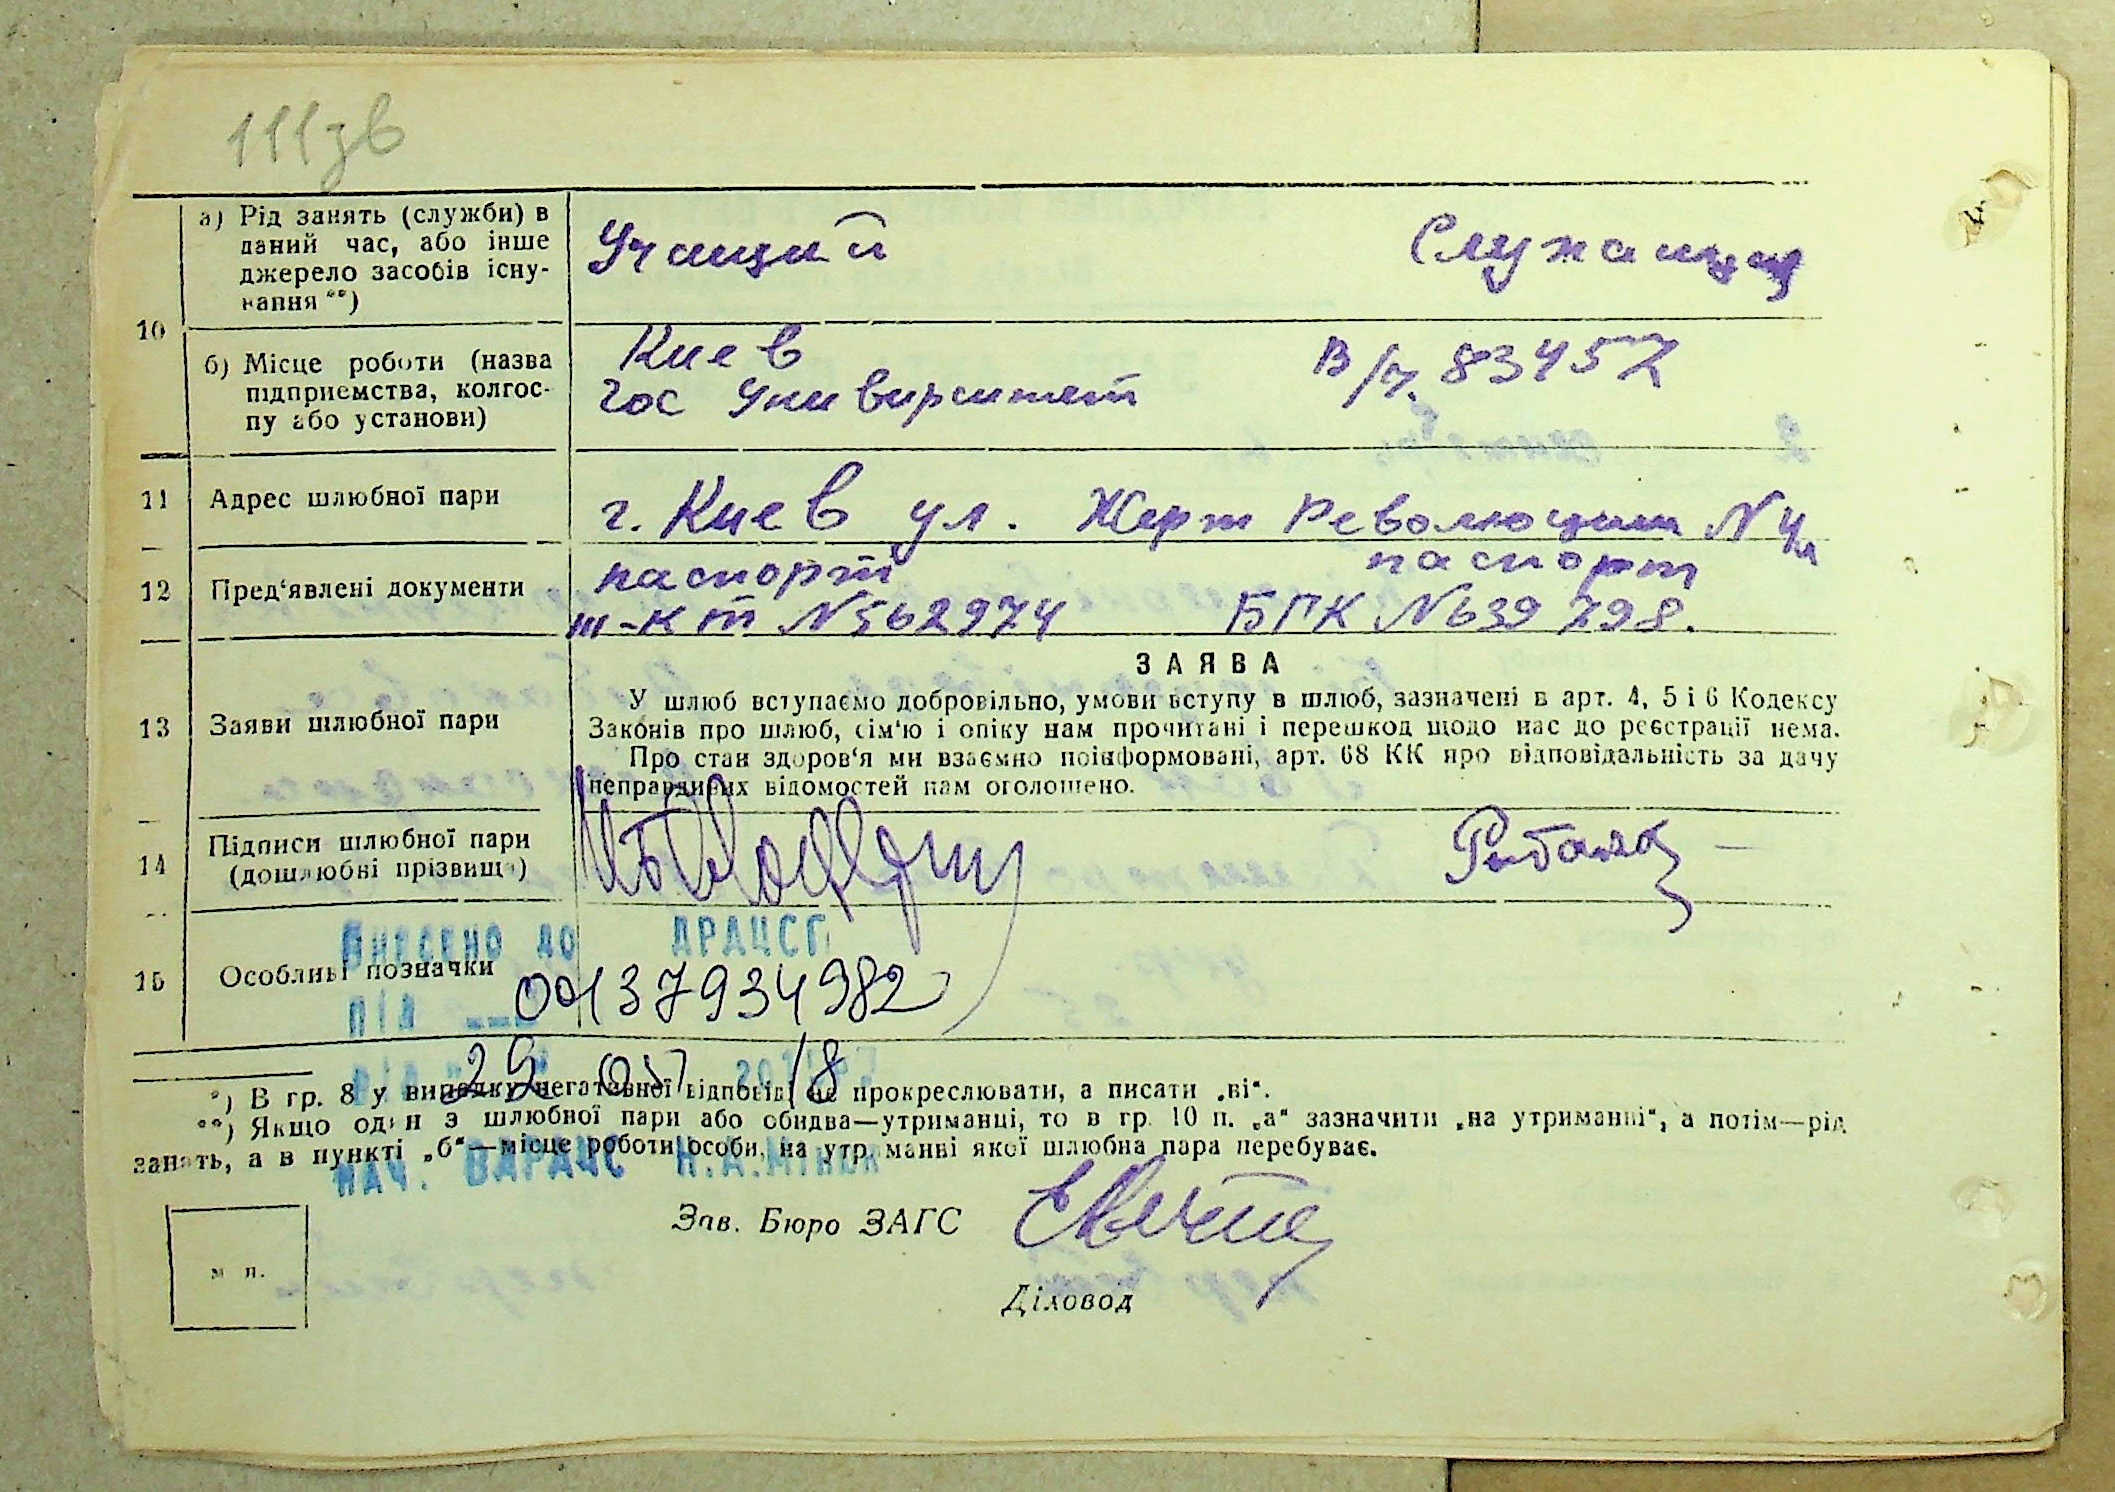 111зв
10
а) Рід занять (служби) в
даний час, або інше
джерело засобів існу-
вання **)
Учащий
Служащая
б) Місце роботи (назва
підприємства, колгос-
пу або установи)
Киев
Гос Университет
В/ч. 83457
11
Адрес шлюбної пари
г. Киев ул. Жерт Революции N 4
12
Пред‘явлені документи
паспорт
паспорт
III-КТ N 562974
БПК N 639798.
ЗАЯВА
13
Заяви шлюбної пари
У шлюб вступаємо добровільно, умови вступу в шлюб, зазначені в арт. 4, 5 і 6 Кодексу
Законів про шлюб, сім‘ю і опіку нам прочитані і перешкод щодо нас до реєстрації нема.
Про стан здоров‘я ми взаємно поінформовані, арт. 68 КК про відповідальність за дачу
неправдивих відомостей нам оголошено.
14
Підписи шлюбної пари
(дошлюбні прізвища)
15
Особливі позначки
Внесено до ДРАЦСГ
під 00137934982
від 29 05 2018
*) В гр. 8 у випадку негативної відповіді не прокреслювати, а писати „ні“.
**) Якщо один з шлюбної пари або обидва—утриманці, то в гр. 10 п. „а“ зазначити „на утриманні“, а потім—рід
занять, а в пункті „б“—місце роботи особи, на утриманні якої шлюбна пара перебуває.
НАЧ. ВДРАЦС Н.А.
Зав. Бюро ЗАГС
м п.
Діловод